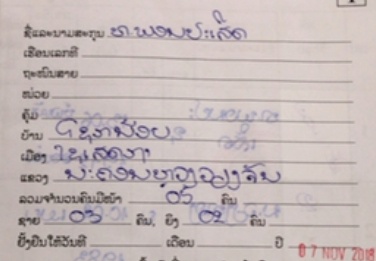 ຊື່ແລະນາມສະກຸນ ທ ພອນປະເສີດ
ເຮືອນເລກທີ
ຖະໜົນສາຍ
ໜ່ວຍ
ຄຸ້ມ
ບ້ານ
ເມືອງ ໄຊເສດຖາ
ແຂວງ ນະຄອນຫຼວງວຽງຈັນ
ລວມຈຳນວນຄົນມີໜ້າ 05 ຄົນ
ຊາຍ 03 ຄົນ, ຍິງ 02 ຄົນ
ຢັ້ງຢືນໃຫ້ວັນທີ ເດືອນ ປີ 07 NOV 2018